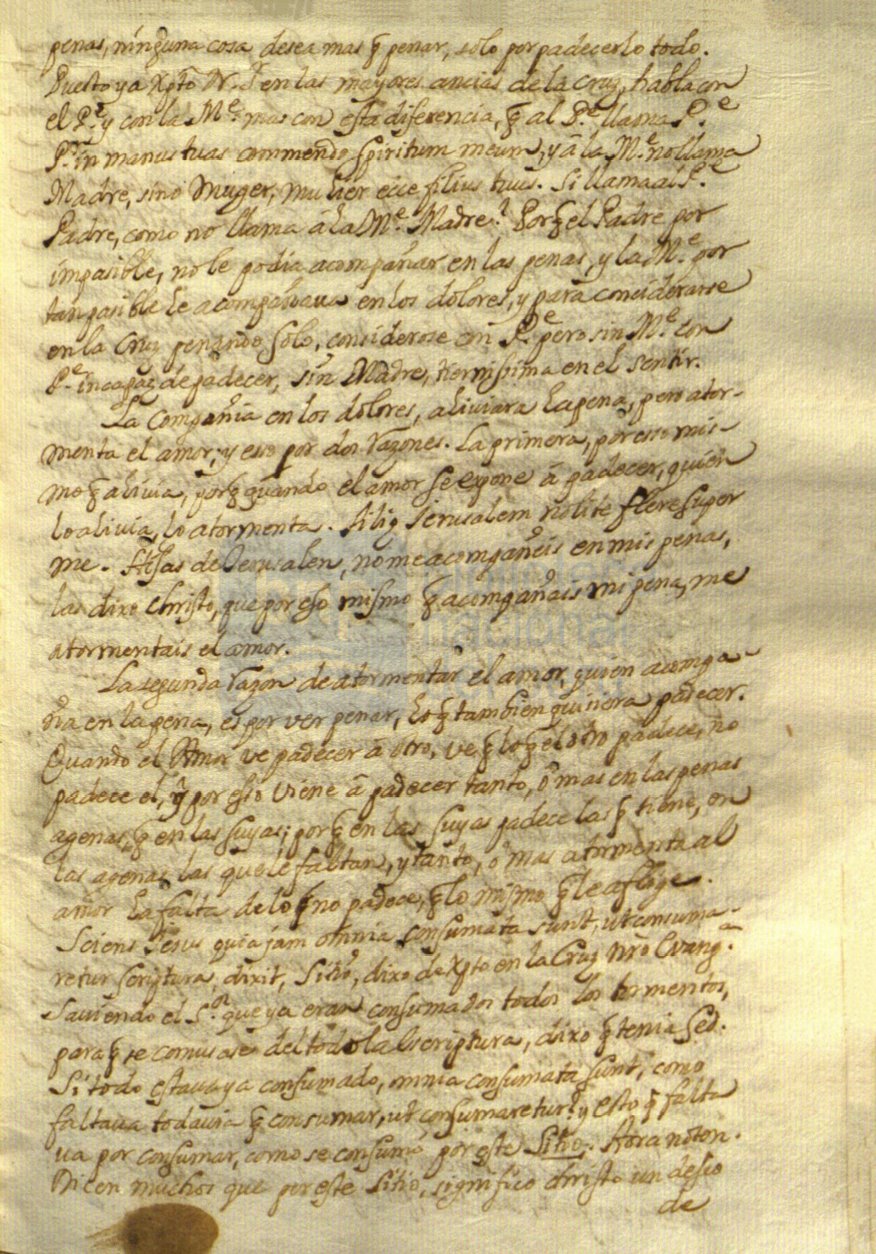 penas, ninguna cosa desea mas q̃ penar, sólo por padecerlo todo.
Puesto ya Xpto N. S. en las mayores ancias de la cruz, habla con
el P.e y con la M.e mas con esta diferencia, q̃ al P.e llama P.e
P.r in manus tuas commendo spiritum meum, y â la M.e no llama
Madre, sino Muger, Mulier ecce filius tuus. Si llama al P.e
Padre, como no llama â la M.e Madre? Porq̃ el Padre por
impasible, no le podia acompañar en las penas, y la M.e por
tan pasible le acompañava en los dolores, y para conciderarse
en la Cruz penando solo, considerose con P.e pero sin M.e con
P.e incapaz de padecer, sin Madre, tiernissima en el sentir.
La Compañia en los dolores, aliviara la pena, pero ator-
menta el amor; y eso por dos razones. La primera, por esso mis-
mo q̃ alivia, porq̃ quando el amor se expone â padecer, quien
lo alivia, lo atormenta. Filiæ Jerusalem nolite flere super
me. Hijas de Jerusalen, no me acompañeis en mis penas,
las dixo Christo, que por eso mismo q̃ acompañais mi pena, me
atormentais el amor.
La segunda razon de atormentar el amor, quien acompa-
ña en la pena, es por ver penar, lo q̃ tambien quisiera padecer.
Quando el Amor ve padecer â otro, ve q̃ lo q̃ el otro padece, no
padece el, y por eso viene â padecer tanto, ô mas en las penas
agenas, q̃ en las suyas; porq̃ en las suyas padece las q̃ tiene, en
las agenas las que le faltan, y tanto, ô mas atormenta al
amor la falta de lo q̃ no padece, q̃ lo mismo q̃ le aflige.
Sciens Jesus quia jam omnia consumata sunt, ut consuma-
retur scriptura, dixit, Sitio, dixo de Xpto en la Cruz nro Evang.a
Saviendo el S.or que ya eran consumados todos los tormentos,
para q̃ se comusase del todo la Escriptura, dixo q̃ tenia Sed.
Si todo estava ya consumado, omnia consumata sunt, como
faltava todavia q̃ consumar, ut consumaretur? y esto q̃ falta
va por consumar, como se consumâ por este Sitio. Aora noten.
Dicen muchos que por este Sitio, significo christo un deseo
de